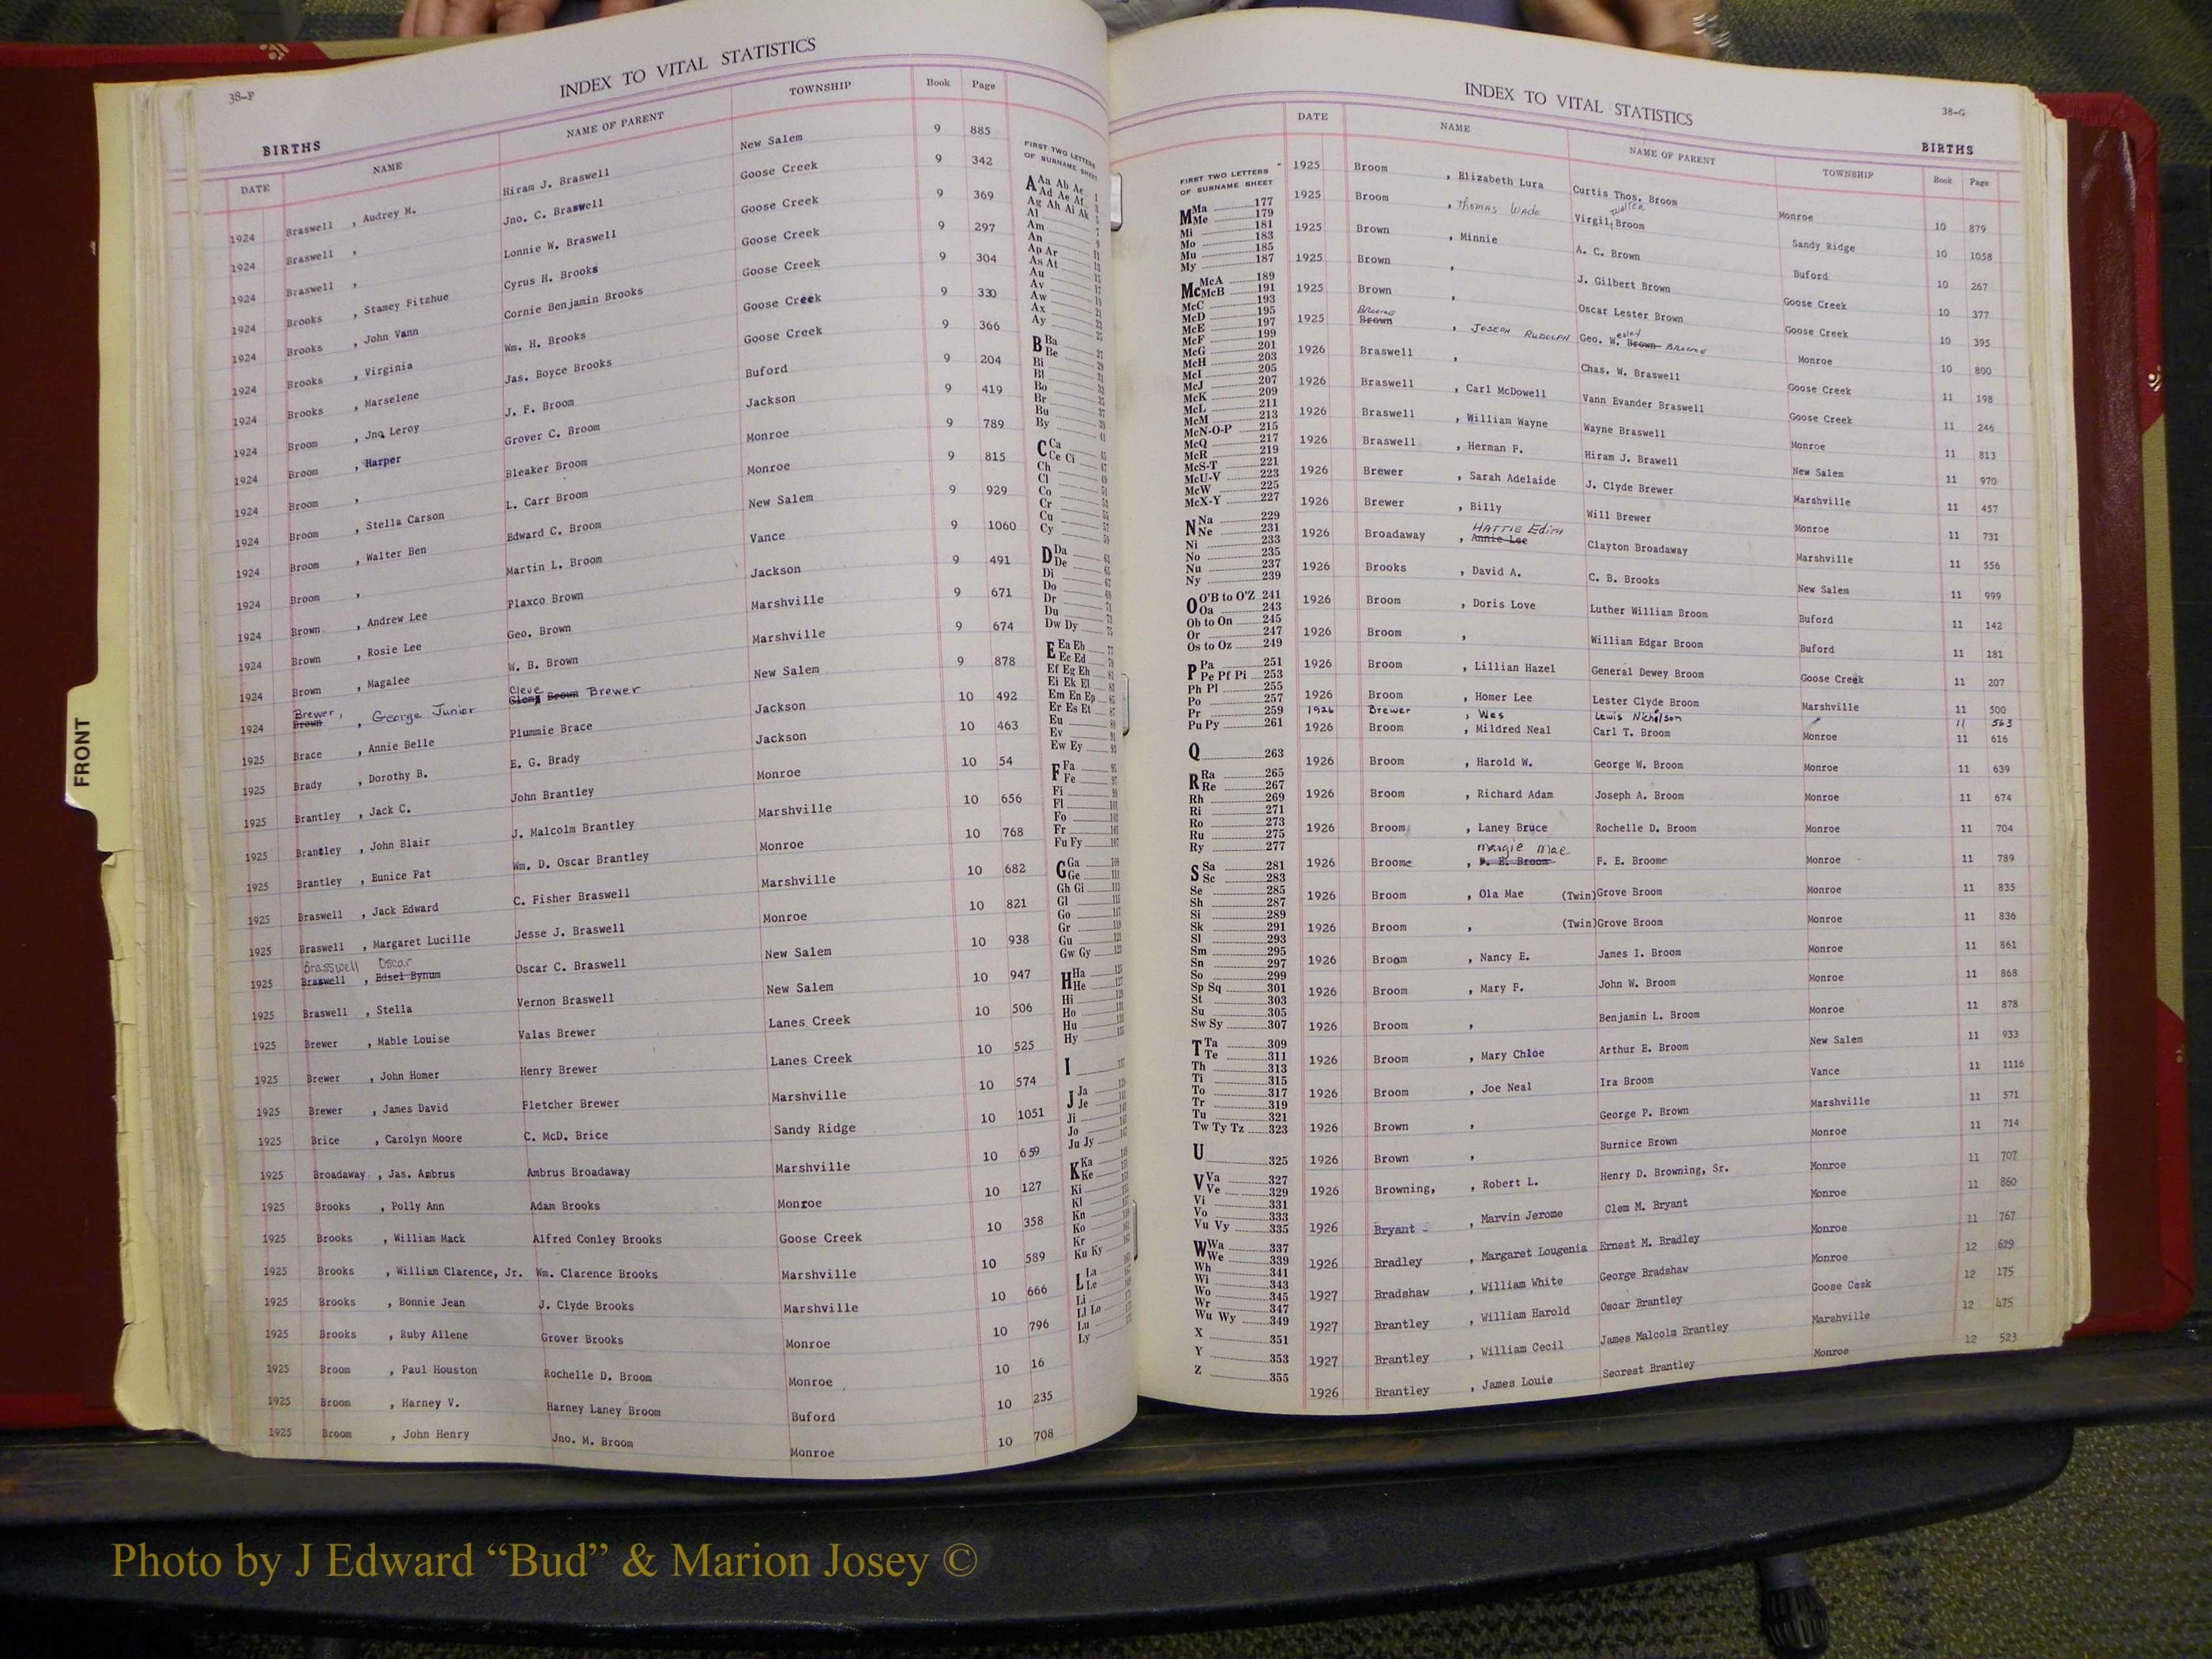 38-F
INDEX TO VITAL STATISTICS
BIRTHS
DATE NAME NAME OF PARENT TOWNSHIP Book Page
1924 Braswell , Audrey M. Hiram J. Braswell New Salem 9 885
1924 Braswell , Jno. C. Braswell Goose Creek 9 342
1924 Braswell , Lonnie W. Braswell Goose Creek 9 369
1924 Brooks , Stamey Fitzhue Cyrus H. Brooks Goose Creek 9 297
1924 Brooks , John Vann Cornie Benjamin Brooks Goose Creek 9 304
1924 Brooks , Virginia Wm. H. Brooks Goose Creek 9 330
1924 Brooks , Marselene Jas. Boyce Brooks Goose Creek 9 366
1924 Broom , Jno Leroy J. F. Broom Buford 9 204
1924 Broom , Harper Grover C. Broom Jackson 9 419
1924 Broom , Bleaker Broom Monroe 9 789
1924 Broom , Stella Carson L. Carr Broom Monroe 9 815
1924 Broom , Walter Ben Edward C. Broom New Salem 9 929
1924 Broom , Martin L. Broom Vance 9 1060
1924 Brown , Andrew Lee Plaxco Brown Jackson 9 491
1924 Brown , Rosie Lee Geo. Brown Marshville 9 671
1924 Brown , Magalee W. B. Brown Marshville 9 674
Brewer, Cleve
1924 Brown , George Junior Brown Brewer New Salem 9 878
1925 Brace , Annie Belle Plummie Brace Jackson 10 492
1925 Brady , Dorothy B. E. G. Brady Jackson 10 463
1925 Brantley , Jack C. John Brantley Monroe 10 54
1925 Brantley , John Blair J. Malcolm Brantley Marshville 10 656
1925 Brantley , Eunice Pat Wm. D. Oscar Brantley Monroe 10 768
1925 Braswell , Jack Edward C. Fisher Braswell Marshville 10 682
1925 Braswell , Margaret Lucille Jesse J. Braswell Monroe 10 821
Brasswell Oscar
1925 Braswell , Edsel Bynum Oscar C. Braswell New Salem 10 938
1925 Braswell , Stella Vernon Braswell New Salem 10 947
1925 Brewer , Mable Louise Valas Brewer Lanes Creek 10 506
1925 Brewer , John Homer Henry Brewer Lanes Creek 10 525
1925 Brewer , James David Fletcher Brewer Marshville 10 574
1925 Brice , Carolyn Moore C. McD. Brice Sandy Ridge 10 1051
1925 Broadaway , Jas. Ambrus Ambrus Broadaway Marshville 10 659
1925 Brooks , Polly Ann Adam Brooks Monroe 10 127
1925 Brooks , William Mack Alfred Conley Brooks Goose Creek 10 358
1925 Brooks , William Clarence, Jr. Wm. Clarence Brooks Marshville 10 589
1925 Brooks , Bonnie Jean J. Clyde Brooks Marshville 10 666
1925 Brooks , Ruby Allene Grover Brooks Monroe 10 796
1925 Broom , Paul Houston Rochelle D. Broom Monroe 10 16
1925 Broom , Harney V. Harney Laney Broom Buford 10 235
1925 Broom , John Henry Jno. M. Broom Monroe 10 708
FIRST TWO LETTERS
OF SURNAME SHEET
A Aa Ab Ae
Ad Ae Af
Ag Ah Ai Ak
Al
Am
An
Ap Ar
As At
Au
Av
Aw
Ax
Ay
B Ba
Be
Bi
Bl
Bo
Br
Bu
By
C Ca
Ce Ci
Ch
Cl
Co
Cr
Cu
Cy
D Da
De
Di
Do
Dr
Du
Dw Dy
E Ea Eb
Ec Ed
Ef Eg Eh
Ei Ek El
Em En Ep
Er Es Et
Eu
Ev
Ew Ey
F Fa
Fe
Fi
Fl
Fo
Fr
Fu Fy
G Ga
Ge
Gh Gi
Gl
Go
Gr
Gu
Gw Gy
H Ha
He
Hi
Ho
Hu
Hy
I
J Ja
Je
Ji
Jo
Ju Jy
K Ka
Ke
Ki
Kl
Kn
Ko
Kr
Ku Ky
L La
Le
Li
Ll Lo
Lu
Ly
FRONT
INDEX TO VITAL STATISTICS
38-G
BIRTHS
FIRST TWO LETTERS
OF SURNAME SHEET
M Ma 177
Me 179
Mi 181
Mo 183
Mu 185
My 187
Mc McA 189
McB 191
McC 193
McD 195
McE 197
McF 199
McG 201
McH 203
McI 205
McJ 207
McK 209
McL 211
McM 213
McN-O-P 215
McQ 217
McR 219
McS-T 221
McU-V 223
McW 225
McX-Y 227
N Na 229
Ne 231
Ni 233
No 235
Nu 237
Ny 239
O O'B to O'Z 241
Oa 243
Ob to On 245
Or 247
Os to Oz 249
P Pa 251
Pe Pf Pi 253
Ph Pl 255
Po 257
Pr 259
Pu Py 261
Q 263
R Ra 265
Re 267
Rh 269
Ri 271
Ro 273
Ru 275
Ry 277
S Sa 281
Sc 283
Se 285
Sh 287
Si 289
Sk 291
Sl 293
Sm 295
Sn 297
So 299
Sp Sq 301
St 303
Su 305
Sw Sy 307
T Ta 309
Te 311
Th 313
Ti 315
To 317
Tr 319
Tu 321
Tw Ty Tz 323
U 325
V Va 327
Ve 329
Vi 331
Vo 333
Vu Vy 335
W Wa 337
We 339
Wh 341
Wi 343
Wo 345
Wr 347
Wu Wy 349
X 351
Y 353
Z 355
DATE NAME NAME OF PARENT TOWNSHIP Book Page
1925 Broom , Elizabeth Lura Curtis Thos. Broom Monroe 10 879
WALTER
1925 Broom , Thomas Wade Virgil Broom Sandy Ridge 10 1058
1925 Brown , Minnie A. C. Brown Buford 10 267
1925 Brown , J. Gilbert Brown Goose Creek 10 377
1925 Brown , Oscar Lester Brown Goose Creek 10 395
Broome esley
1925 Brown , Joseph Rudolph Geo. W. Brown Broome Monroe 10 800
1926 Braswell , Chas. W. Braswell Goose Creek 11 198
1926 Braswell , Carl McDowell Vann Evander Braswell Goose Creek 11 246
1926 Braswell , William Wayne Wayne Braswell Monroe 11 813
1926 Braswell , Herman F. Hiram J. Brawell New Salem 11 970
1926 Brewer , Sarah Adelaide J. Clyde Brewer Marshville 11 457
1926 Brewer , Billy Will Brewer Monroe 11 731
HATTIE Edith
1926 Broadaway , Annie Lee Clayton Broadaway Marshville 11 556
1926 Brooks , David A. C. B. Brooks New Salem 11 999
1926 Broom , Doris Love Luther William Broom Buford 11 142
1926 Broom , William Edgar Broom Buford 11 181
1926 Broom , Lillian Hazel General Dewey Broom Goose Creek 11 207
1926 Broom , Homer Lee Lester Clyde Broom Marshville 11 500
1926 Brewer , Wes Lewis Nicholson " 11 563
1926 Broom , Mildred Neal Carl T. Broom Monroe 11 616
1926 Broom , Harold W. George W. Broom Monroe 11 639
1926 Broom , Richard Adam Joseph A. Broom Monroe 11 674
1926 Broom , Laney Bruce Rochelle D. Broom Monroe 11 704
Margie Mae
1926 Broome , F. E. Broom F. E. Broome Monroe 11 789
1926 Broom , Ola Mae (Twin) Grove Broom Monroe 11 835
1926 Broom , (Twin) Grove Broom Monroe 11 836
1926 Broom , Nancy E. James I. Broom Monroe 11 861
1926 Broom , Mary F. John W. Broom Monroe 11 868
1926 Broom , Benjamin L. Broom Monroe 11 878
1926 Broom , Mary Chloe Arthur E. Broom New Salem 11 933
1926 Broom , Joe Neal Ira Broom Vance 11 1116
1926 Brown , George P. Brown Marshville 11 571
1926 Brown , Burnice Brown Monroe 11 714
1926 Browning, , Robert L. Henry D. Browning, Sr. Monroe 11 707
1926 Bryant , Marvin Jerome Clem M. Bryant Monroe 11 860
1926 Bradley , Margaret Lougenia Ernest M. Bradley Monroe 11 767
1927 Bradshaw , William White George Bradshaw Monroe 12 629
1927 Brantley , William Harold Oscar Brantley Goose Cesk 12 175
1927 Brantley , William Cecil James Malcolm Brantley Marshville 12 475
1926 Brantley , James Louie Secrest Brantley Monroe 12 523
Photo by J Edward “Bud” & Marion Josey ©